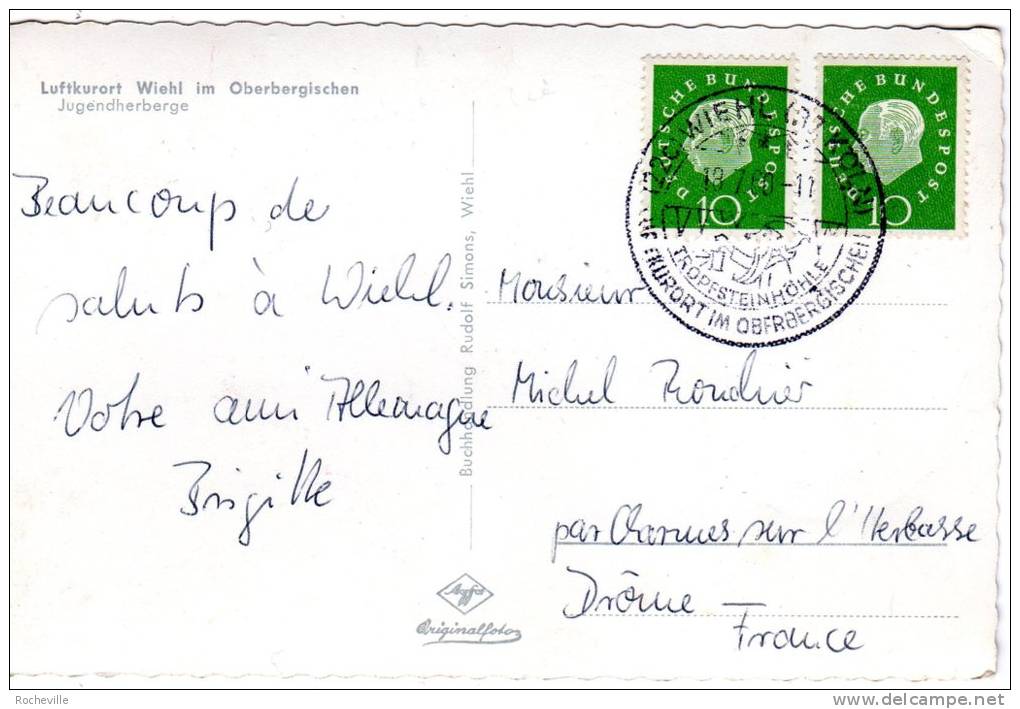 Luftkurort Wiehl im Oberbergischen
Jugendherberge
Beaucoup de
saluts à Wiehl.
Votre ami Allemagne
Brigitte
Buchhandlung Rudolf Simons, Wiehl
Agfa
Originalfoto
DEUTSCHE BUNDESPOST
10
DEUTSCHE BUNDESPOST
10
(22c) WIEHL (BZ KÖLN)
18.7.60-11
TROPFSTEINHÖHLE
LUFTKURORT IM OBERBERGISCHEN
Monsieur
Michel
par Charmes sur l'Herbasse
Drôme —
France
Rocheville
delcampe.net